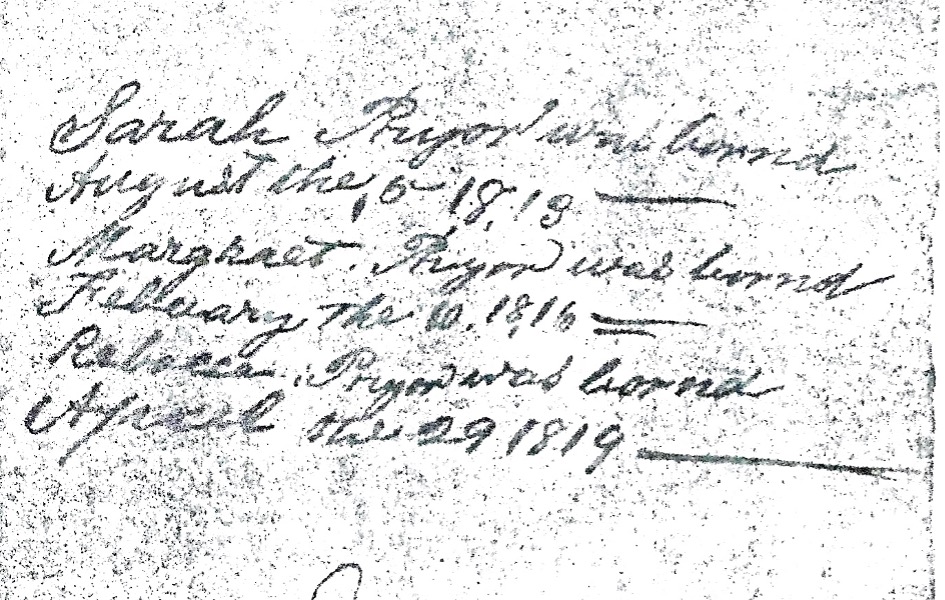 Sarah Pryor was bornd
August the 5 18,13
Margraet. Pryor was bornd
Febuary the 10. 1816
Rebecca. Pryor was bornd
Apreal the 29 1819